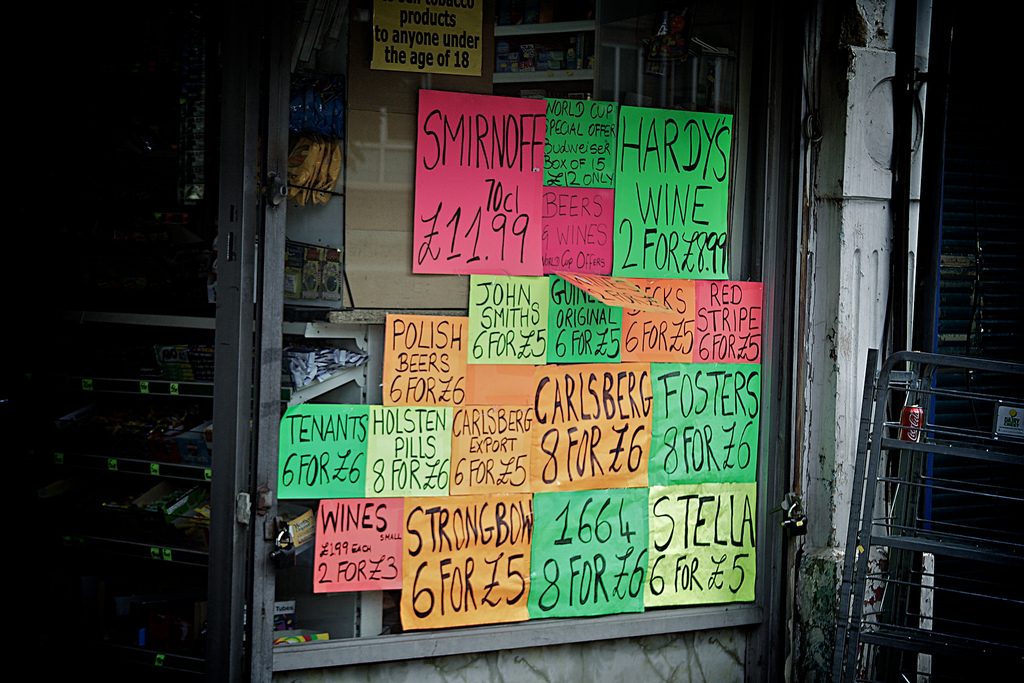 products
to anyone under
the age of 18
SMIRNOFF
70cl
£11.99
WORLD CUP
SPECIAL OFFER
Budweiser
BOX OF 15
£12 ONLY
BEERS
WINES
WORLD CUP OFFERS
HARDY'S
WINE
2 FOR £8.99
JOHN
SMITHS
6 FOR £5
GUINE
ORIGINAL
6 FOR £5
ECKS
6 FOR £5
RED
STRIPE
6 FOR £5
POLISH
BEERS
6 FOR £6
TENANTS
6 FOR £6
HOLSTEN
PILLS
8 FOR £6
CARLSBERG
EXPORT
6 FOR £5
CARLSBERG
8 FOR £6
FOSTERS
8 FOR £6
WINES
SMALL
£1.99 EACH
2 FOR £3
STRONGBOW
6 FOR £5
1664
8 FOR £6
STELLA
6 FOR £5